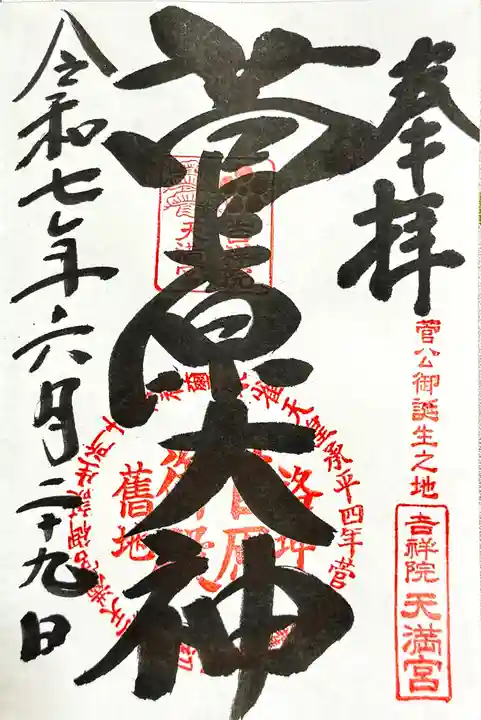 奉拝
菅公御誕生之地
吉祥院天満宮
菅原大神
吉祥院
天満宮
天皇承平四年菅
舊地
令和七年六月二十九日